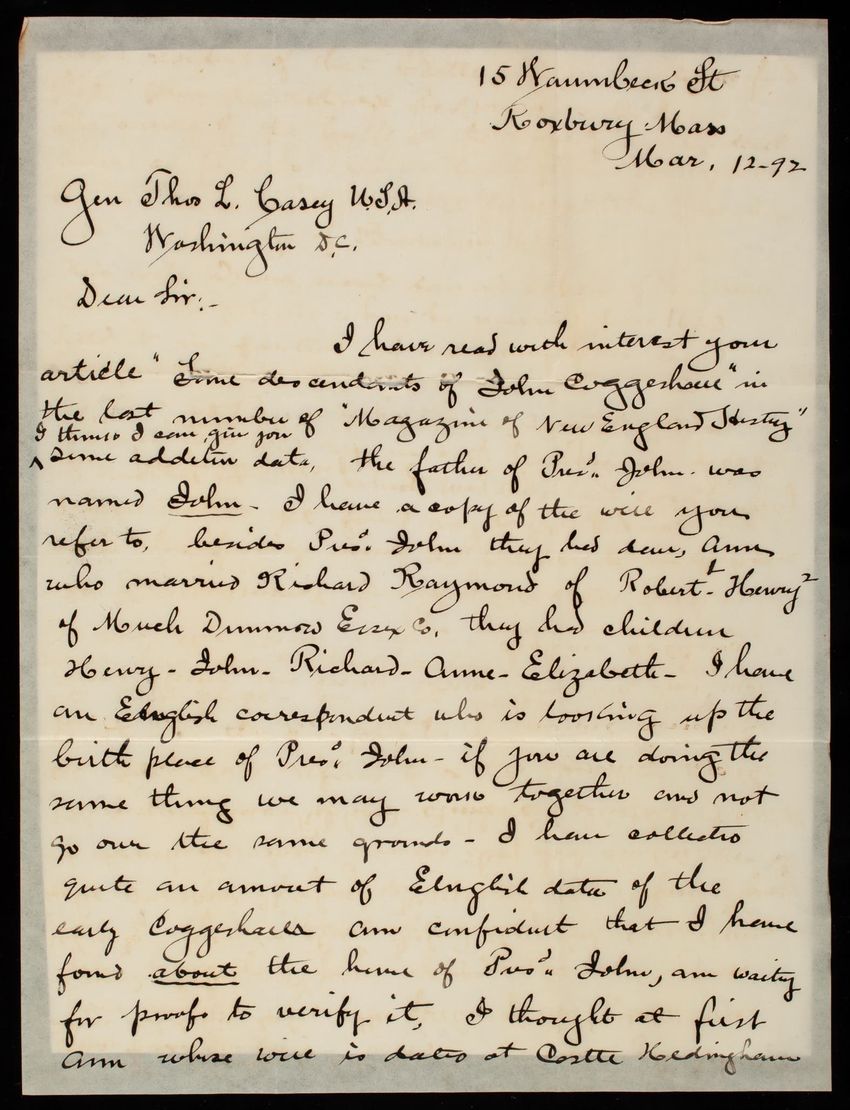 15 Waumbeck St
Roxbury Mass
Mar. 12-92
Gen Thos L. Casey U.S.A.
Washington D.C.
Dear Sir:-
I have read with interest your
article "Some descendants of John Coggeshall" in
the last number of "Magazine of New England History"
I think I can give you
some addition data, the father of Pres't John was
named John - I have a copy of the will you
refer to, besides Pres't John they had dau, Ann
who married Richard Raymond of Robert 1 - Henry 2
of Much Dunmow Essex Co, they had children
Henry - John - Richard - Anne - Elizabeth - I have
an English correspondent who is looking up the
birth place of Pres't John - if you are doing the
same thing we may work together and not
go over the same grounds - I have collected
quite an amount of English data of the
early Coggeshalls am confident that I have
found about the home of Pres't John, am waiting
for proofs to verify it, I thought at first
Ann whose will is dated at Castle Hedingham